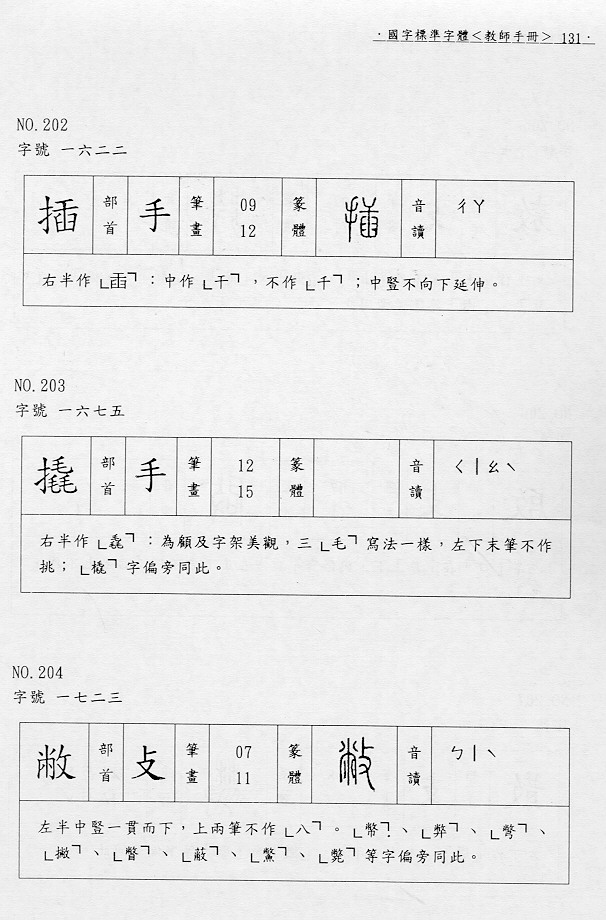 ·國字標準字體<教師手冊> 131·
NO.202
字號 一六二二
插 部首 手 筆畫 09 12 篆體 音讀 ㄔㄚ
右半作「臿」：中作「干」，不作「千」；中豎不向下延伸。
NO.203
字號 一六七五
撬 部首 手 筆畫 12 15 篆體 音讀 ㄑㄧㄠˋ
右半作「毳」：為顧及字架美觀，三「毛」寫法一樣，左下末筆不作
挑；「橇」字偏旁同此。
NO.204
字號 一七二三
敝 部首 攴 筆畫 07 11 篆體 敝 音讀 ㄅㄧˋ
左半中豎一貫而下，上兩筆不作「八」。「幣」、「弊」、「彆」、
「撇」、「瞥」、「蔽」、「鱉」、「斃」等字偏旁同此。